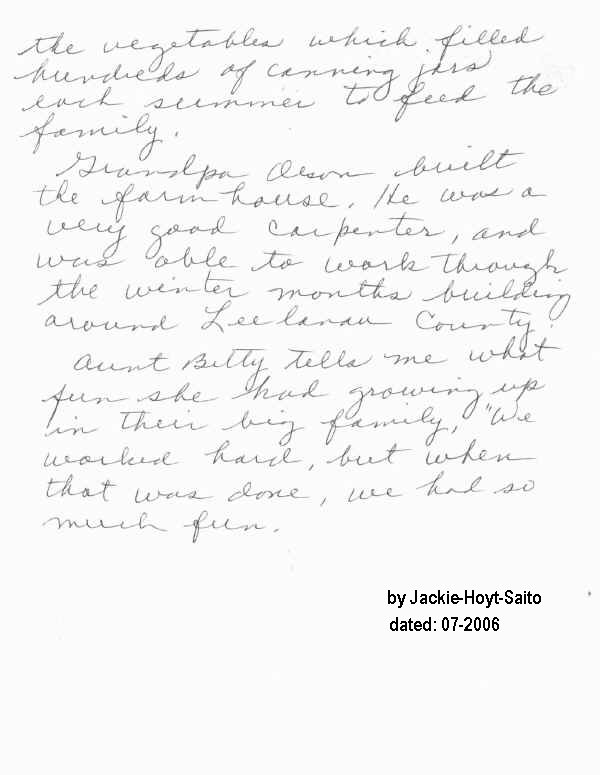 the vegetables which filled
hundreds of canning jars
each summer to feed the
family.
Grandpa Olson built
the farm house. He was a
very good carpenter, and
was able to work through
the winter months building
around Leelanau County.
Aunt Betty tells me what
fun she had growing up
in their big family, "We
worked hard, but when
that was done, we had so
much fun.
by Jackie-Hoyt-Saito
dated: 07-2006